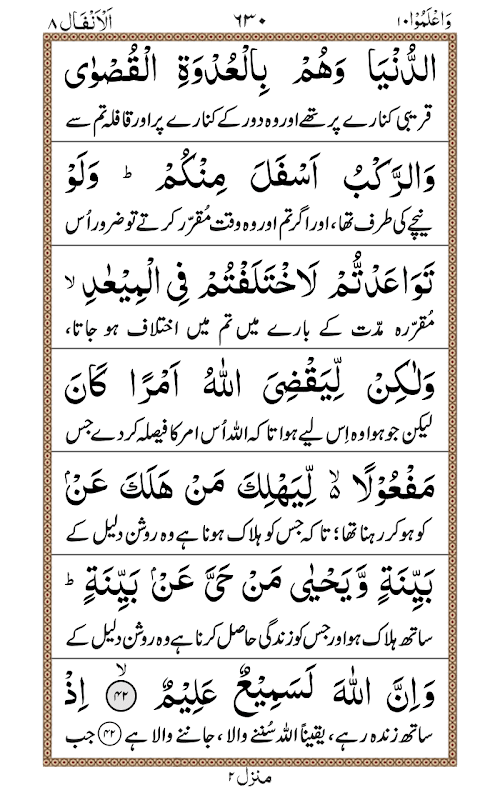 وَاعْلَمُوْا ۱۰ ۶۳۰ اَلْاَنْفَال ۸
الدُّنْیَا وَهُمْ بِالْعُدْوَةِ الْقُصْوٰی
قریبی کنارے پر تھے اور وہ دور کے کنارے پر اور قافلہ تم سے
وَالرَّكْبُ اَسْفَلَ مِنْكُمْ ؕ وَلَوْ
نیچے کی طرف تھا، اور اگر تم اور وہ وقت مُقرّر کرتے تو ضرور اُس
تَوَاعَدْتُّمْ لَاخْتَلَفْتُمْ فِی الْمِیْعٰدِ ۙ
مُقرّرہ مدّت کے بارے میں تم میں اختلاف ہو جاتا،
وَلٰكِنْ لِّیَقْضِیَ اللّٰهُ اَمْرًا كَانَ
لیکن جو ہوا وہ اِس لیے ہوا تا کہ اللہ اُس امر کا فیصلہ کر دے جس
مَفْعُوْلًا ۙ۬ لِّیَهْلِكَ مَنْ هَلَكَ عَنْۢ
کو ہو کر رہنا تھا؛ تا کہ جس کو ہلاک ہونا ہے وہ روشن دلیل کے
بَیِّنَةٍ وَّیَحْیٰی مَنْ حَیَّ عَنْۢ بَیِّنَةٍ ؕ
ساتھ ہلاک ہو اور جس کو زندگی حاصل کرنا ہے وہ روشن دلیل کے
وَاِنَّ اللّٰهَ لَسَمِیْعٌ عَلِیْمٌ ۙ﴿۴۲﴾ اِذْ
ساتھ زندہ رہے، یقیناً اللہ سُننے والا، جاننے والا ہے ﴿۴۲﴾ جب
منزل ۲